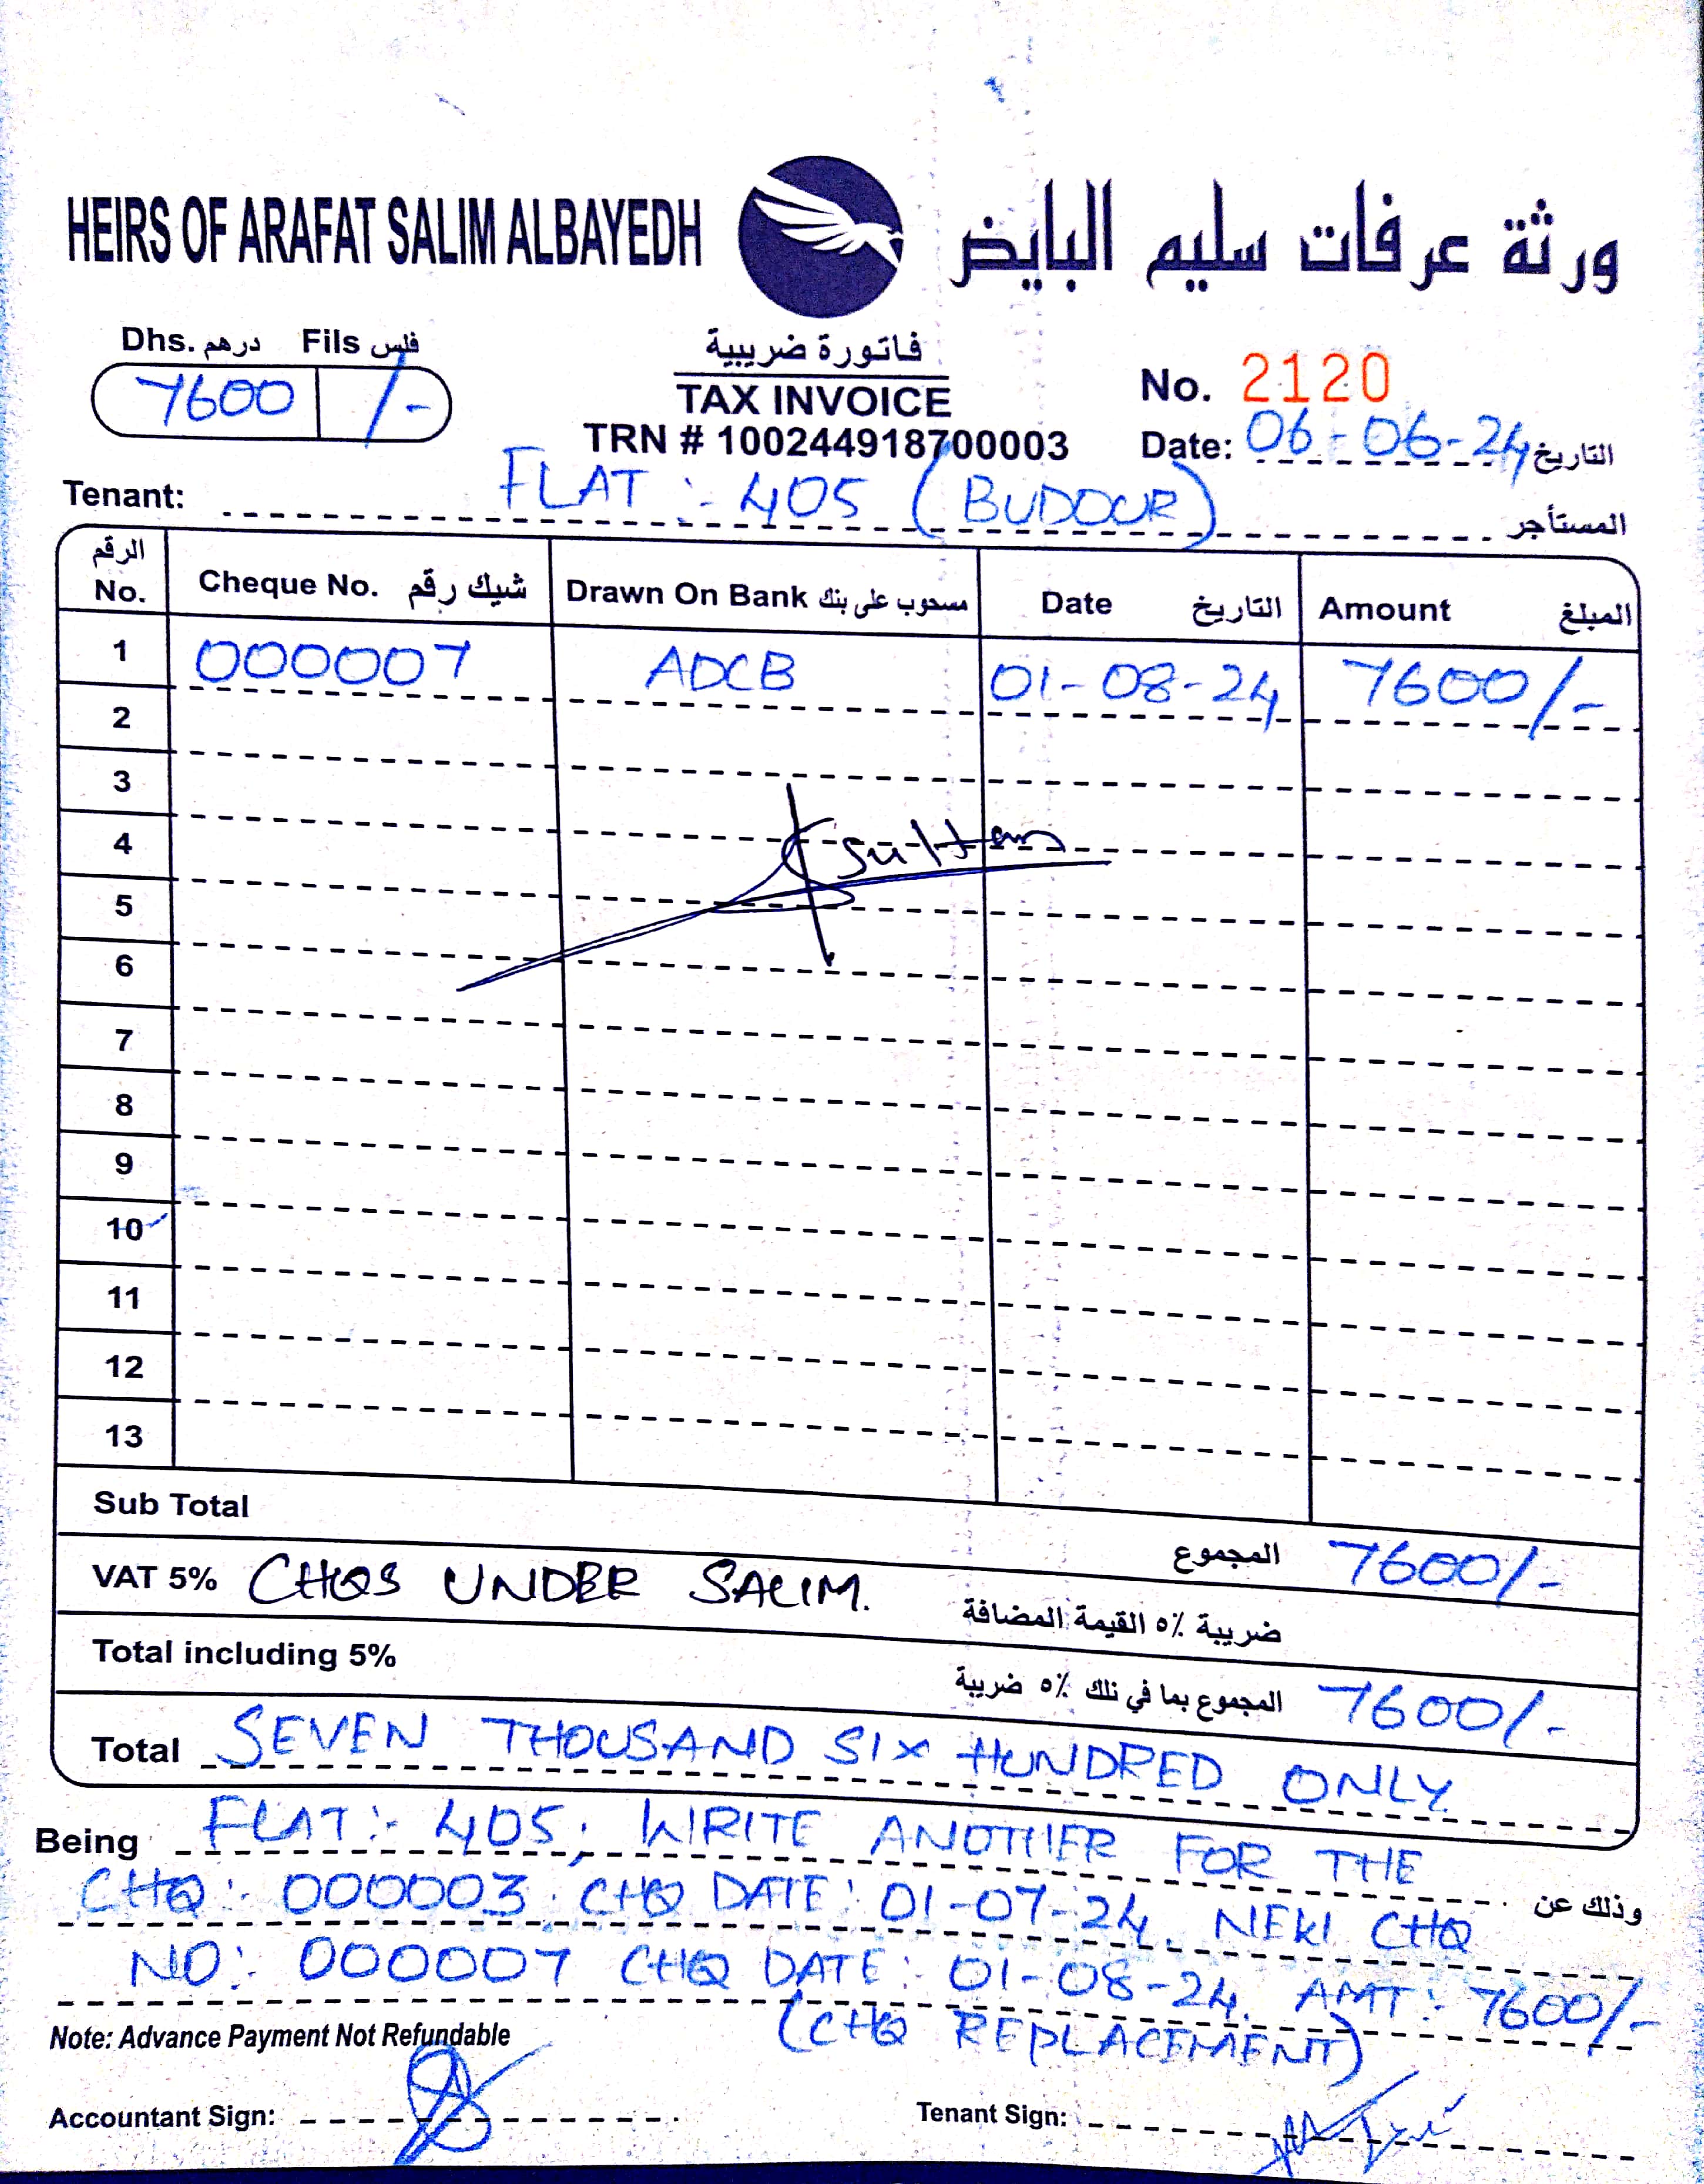 HEIRS OF ARAFAT SALIM ALBAYEDH ورثة عرفات سليم البايض
Dhs. درهم Fils فلس
7600 /-
فاتورة ضريبية
TAX INVOICE
TRN # 100244918700003
No. 2120
Date: 06-06-24 التاريخ
Tenant: FLAT :- 405 (BUDOUR) المستأجر
الرقم No. Cheque No. شيك رقم Drawn On Bank مسحوب على بنك Date التاريخ Amount المبلغ
1 000007 ADCB 01-08-24 7600/-
2
3
4 Sultan
5
6
7
8
9
10
11
12
13
Sub Total المجموع 7600/-
VAT 5% CHQS UNDER SALIM. ضريبة ٥٪ القيمة المضافة
Total including 5% المجموع بما في نلك ٥٪ ضريبة 7600/-
Total SEVEN THOUSAND SIX HUNDRED ONLY
Being FLAT:- 405, WRITE ANOTHER FOR THE
CHQ:- 000003. CHQ DATE: 01-07-24. NEW CHQ وذلك عن
NO:- 000007 CHQ DATE:- 01-08-24. AMT: 7600/-
(CHQ REPLACEMENT)
Note: Advance Payment Not Refundable
Accountant Sign:
Tenant Sign: